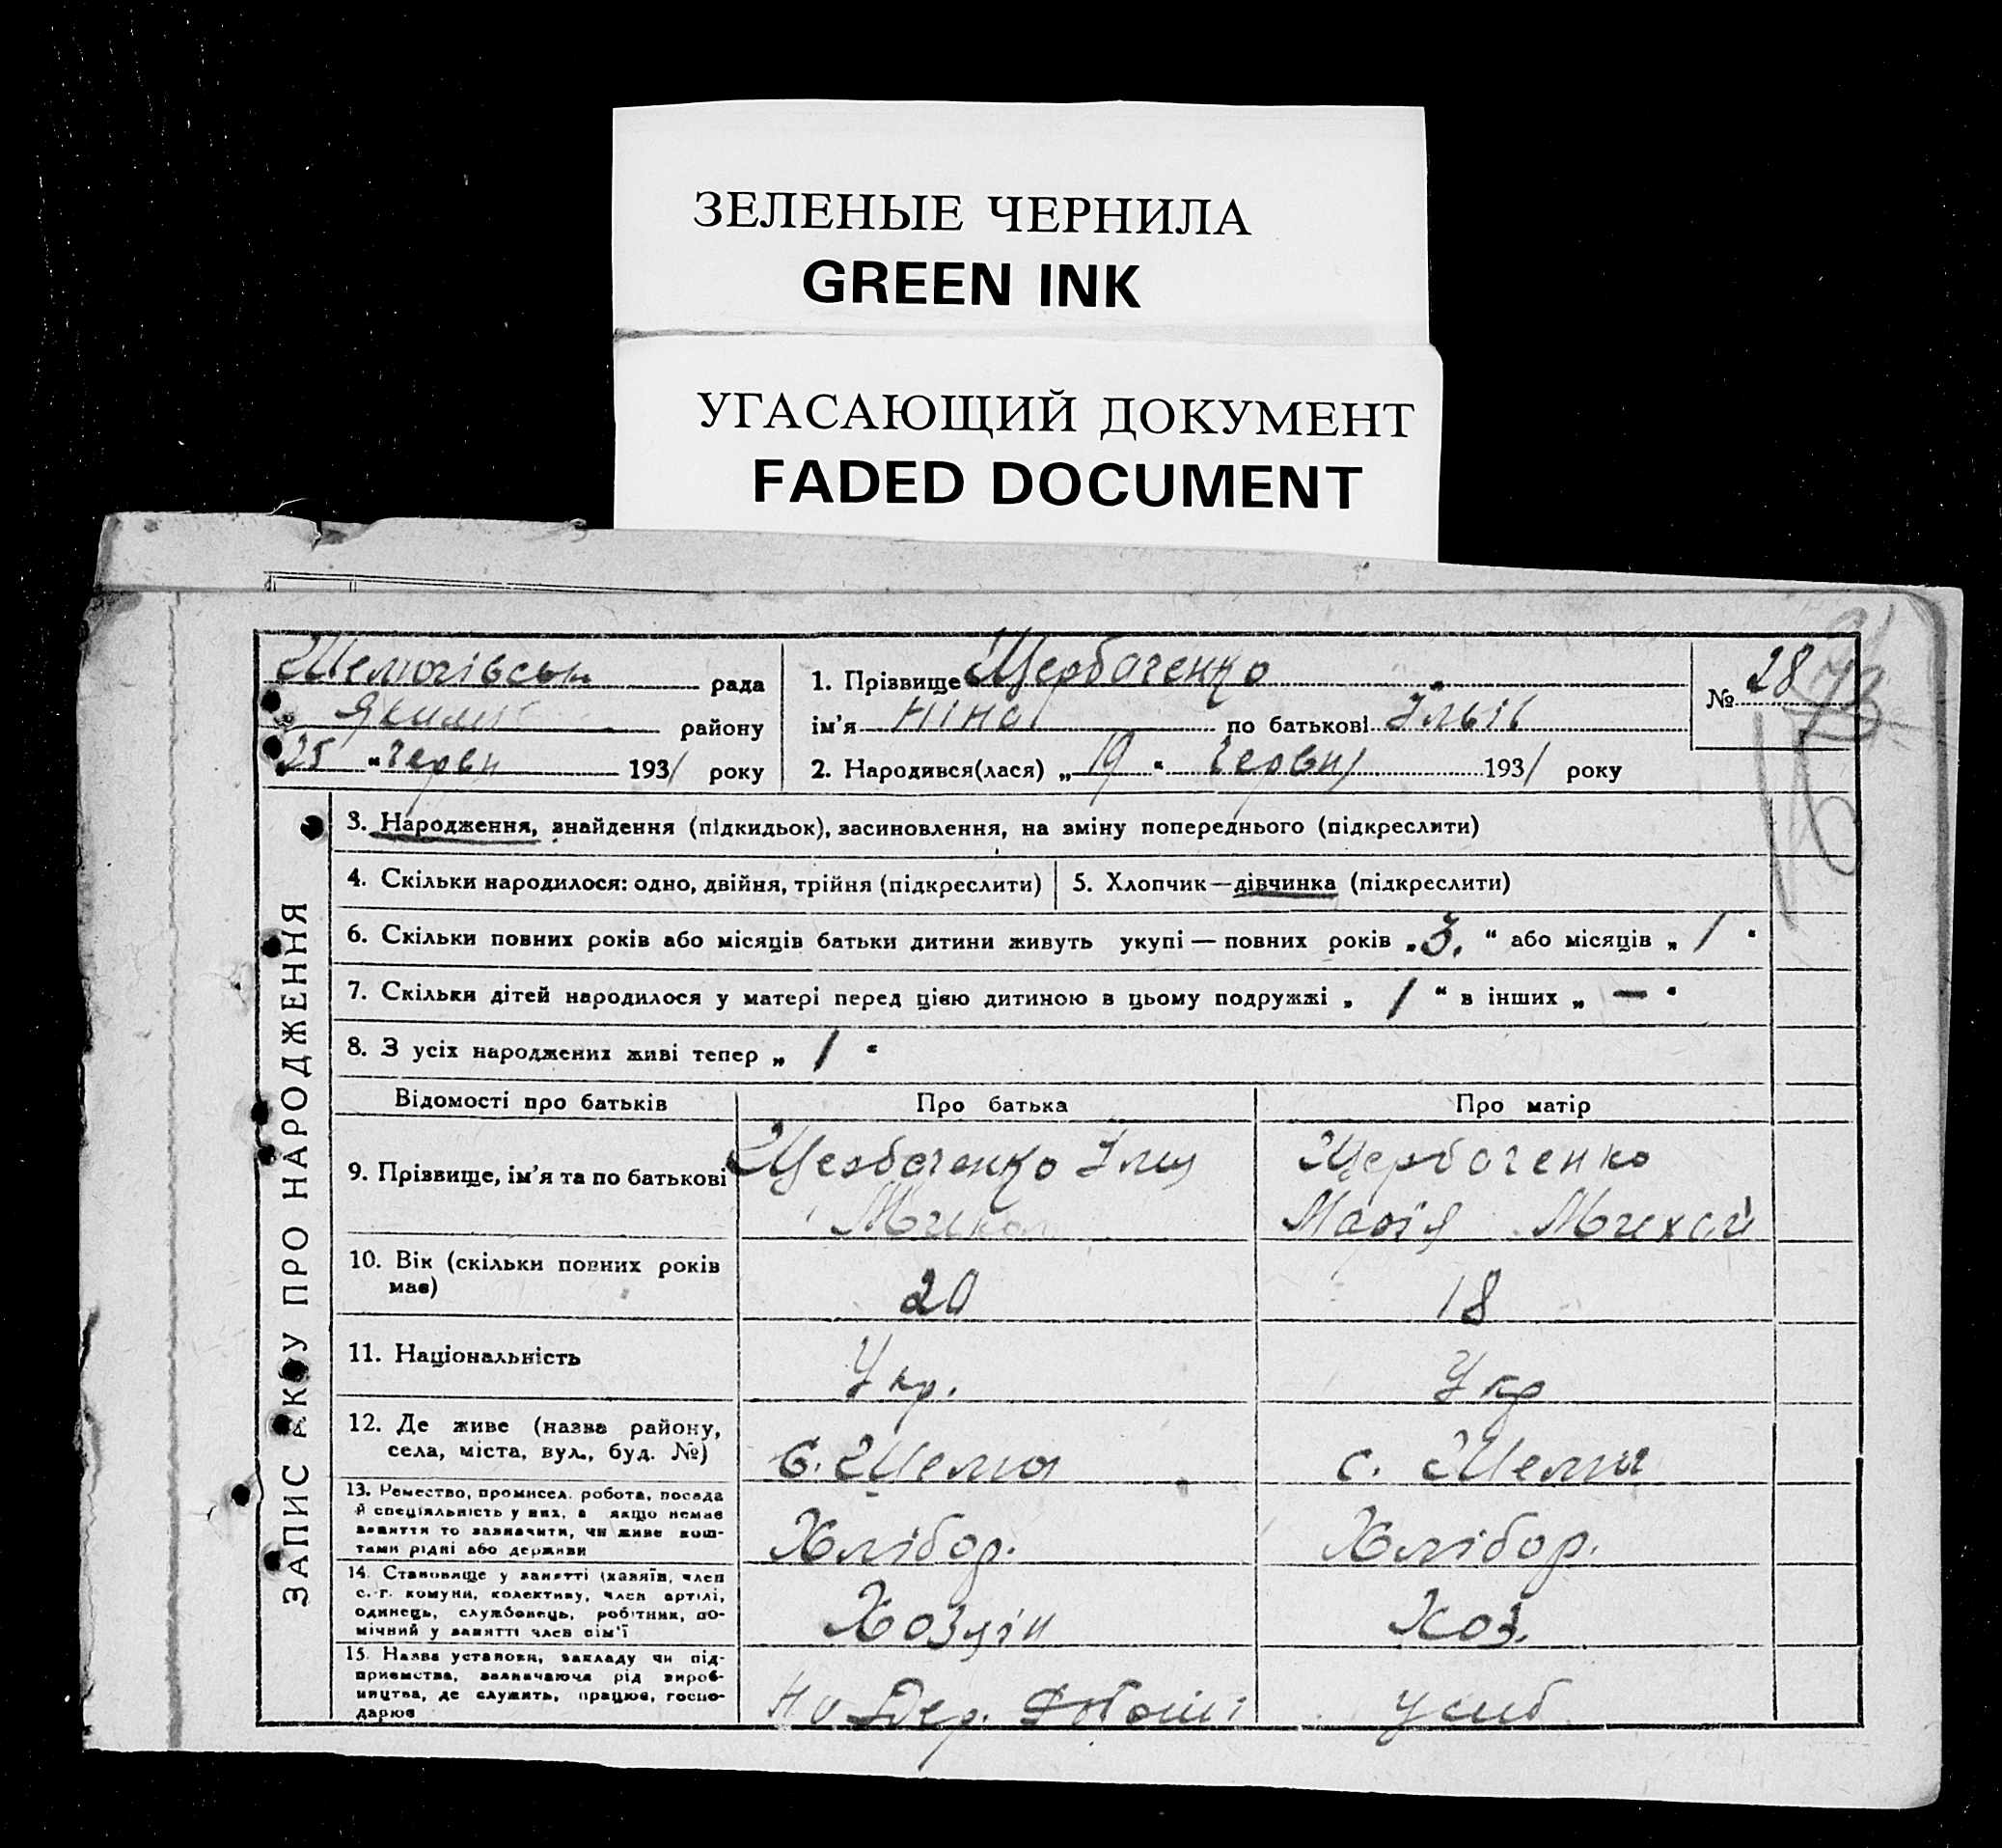 ЗЕЛЕНЫЕ ЧЕРНИЛА
GREEN INK
УГАСАЮЩИЙ ДОКУМЕНТ
FADED DOCUMENT
рада
району
25 „черви 1931 року
1. Прізвище Щербаченко
ім'я Ніна по батькові Ільів
2. Народився(лася) „19" червня 1931 року
№ 28
73
ЗАПИС АКТУ ПРО НАРОДЖЕННЯ
3. Народження, знайдення (підкидьок), засиновлення, на зміну попереднього (підкреслити)
4. Скільки народилося: одно, двійня, трійня (підкреслити)
5. Хлопчик—дівчинка (підкреслити)
6. Скільки повних років або місяців батьки дитини живуть укупі — повних років „3." або місяців „1"
7. Скільки дітей народилося у матері перед цією дитиною в цьому подружжі „1" в інших „—"
8. З усіх народжених живі тепер „1"
Відомості про батьків
Про батька
Про матір
9. Прізвище, ім'я та по батькові
Щербаченко Ілля
Микол
Щербаченко
Марія Михай
10. Вік (скільки повних років
має)
20
18
11. Національність
Укр.
Укр
12. Де живе (назва району,
села, міста, вул., буд. №)
с.
с.
13. Ремество, промисел, робота, посада
й спеціяльність у них, а якщо немає
заняття то зазначити, чи живе кош-
тами рідні або держави
Хлібор.
Хлібор.
14. Становище у занятті (хазяїн, член
с.-г. комуни, колективу, член артілі,
одинець, службовець, робітник, по-
мічний у занятті член сім'ї
Хозяїн
Хоз.
15. Назва установи, закладу чи під-
приємства, зазначаючи рід вироб-
ництва, де служить, працює, госпо-
дарює
Дер.